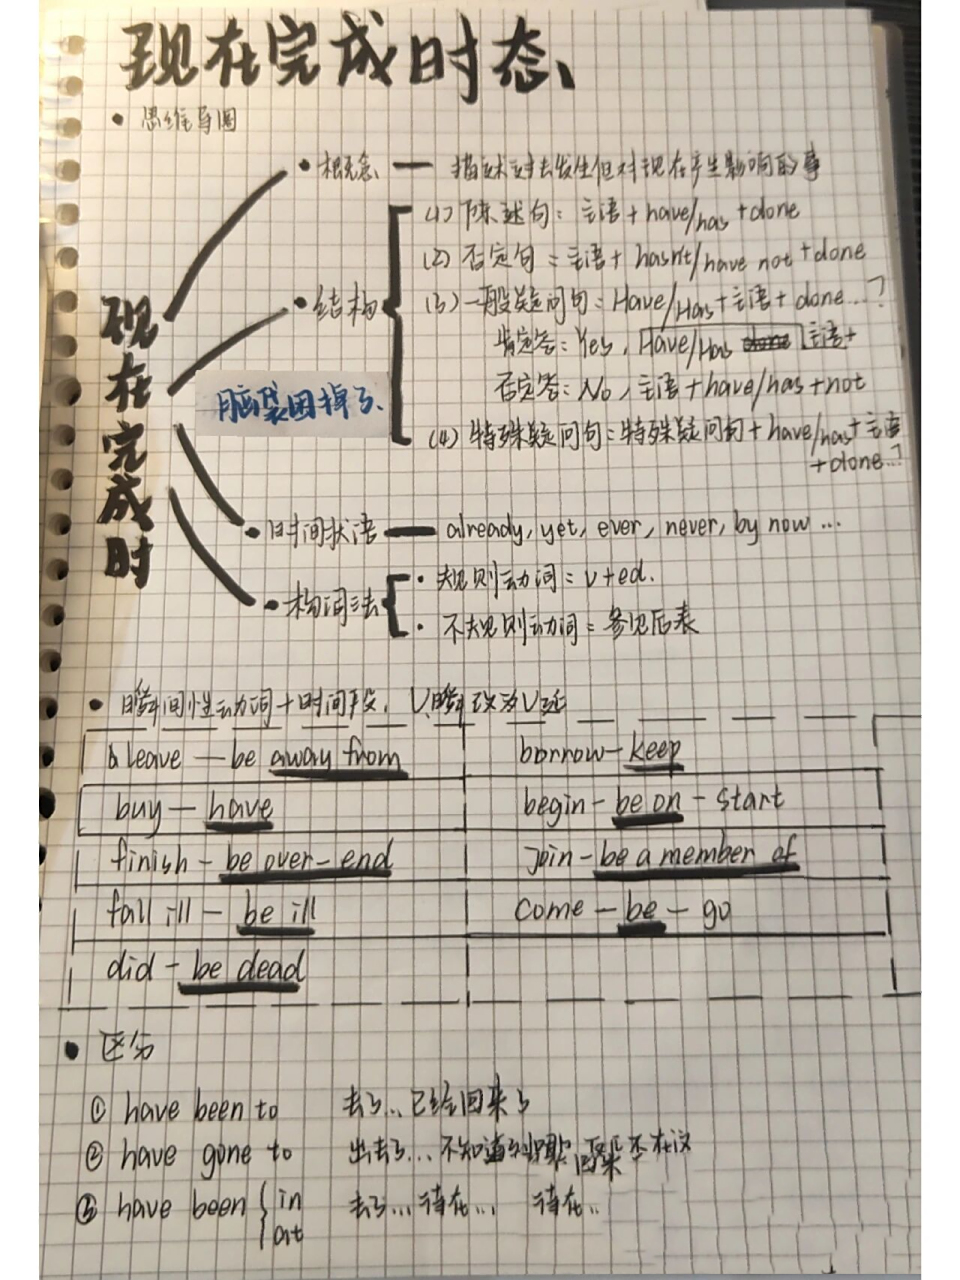 现在完成时态、
• 思维导图
现在完成时
• 概念 — 描述过去发生但对现在产生影响的事
• 结构
(1) 陈述句：主语 + have/has + done
(2) 否定句：主语 + hasn't/have not + done
(3) 一般疑问句：Have/Has + 主语 + done...?
肯定答：Yes, Have/Has 主语+
否定答：No, 主语 + have/has + not
脑袋困掉了、
(4) 特殊疑问句：特殊疑问句 + have/has + 主语
+ done...?
• 时间状语 — already, yet, ever, never, by now ...
• 构词法
• 规则动词：v+ed.
• 不规则动词：参见后表
• 瞬间性动词+时间段, V瞬改为V延
leave — be away from borrow — keep
buy — have begin - be on - start
finish - be over - end join - be a member of
fall ill - be ill come - be - go
did - be dead
• 区分
① have been to 去了...已经回来了
② have gone to 出去了...不知道 是否在这
③ have been { in 去了...待在... 待在..
at